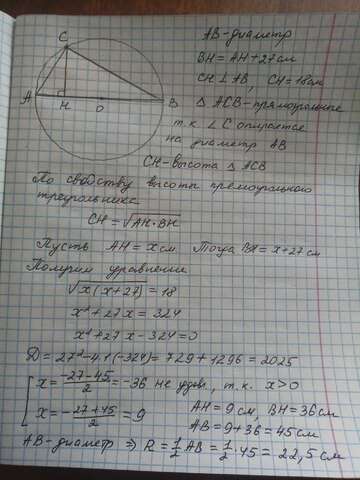 AB-диаметр
BH = AH + 27см
CH ⊥ AB, CH = 18см
△ ACB - прямоугольные
т.к ∠C опирается
на диаметр AB
CH - высота △ ACB
C
A
H
O
B
По свойству высоты прямоугольного
треугольника
CH = √AH·BH
Пусть AH = x см Тогда BH = x+27 см
Получим уравнение
√x(x+27) = 18
x² + 27x = 324
x² + 27x - 324 = 0
D = 27² - 4·1·(-324) = 729 + 1296 = 2025
x = (-27-45)/2 = -36 не удов., т.к. x>0
x = (-27+45)/2 = 9
AH = 9 см, BH = 36 см
AB = 9 + 36 = 45 см
AB - диаметр ⇒ R = 1/2 AB = 1/2 · 45 = 22,5 см